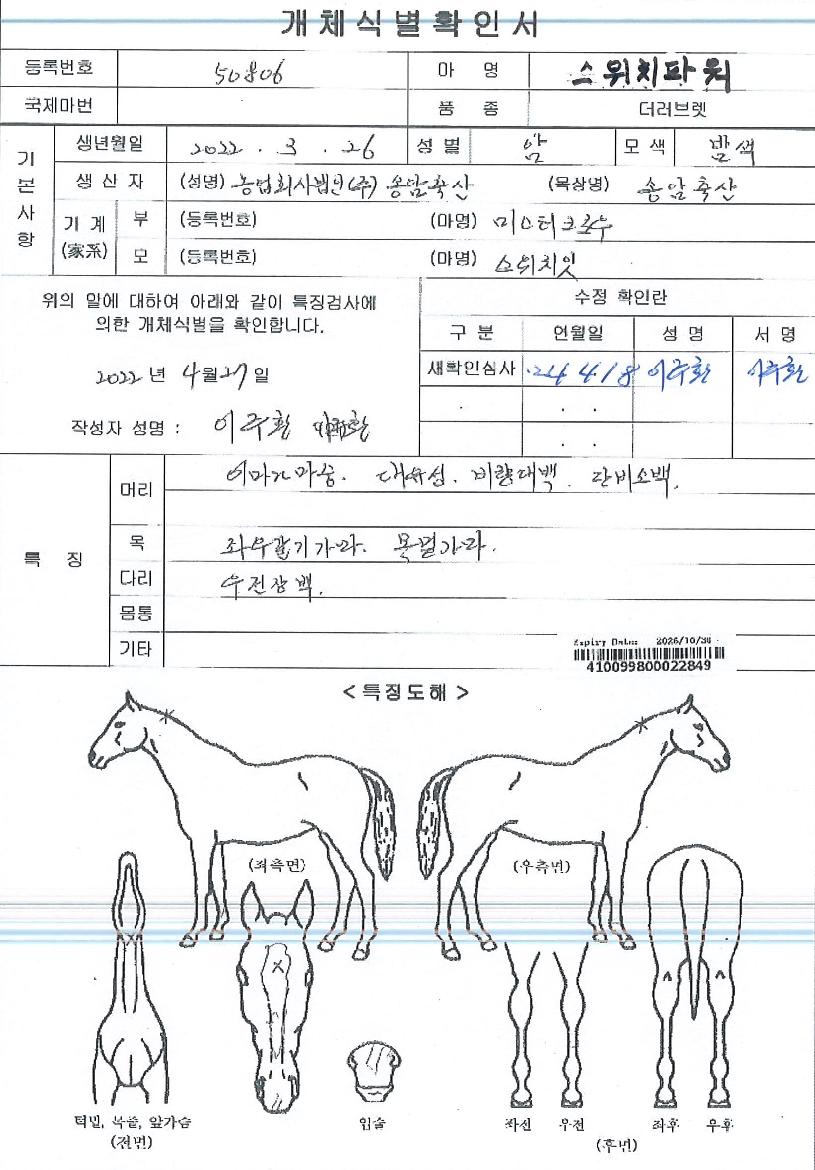 개체식별확인서
등록번호 50806 마 명 스위치파워
국제마번 품 종 더러브렛
기본사항
생년월일 2022 . 3 . 26 성 별 암 모 색 밤색
생 산 자 (성명) 농업회사법인(주) 송암축산 (목장명) 송암축산
기 계 (家系) 부 (등록번호) (마명) 미스터크로우
모 (등록번호) (마명) 스위치잇
위의 말에 대하여 아래와 같이 특징검사에
의한 개체식별을 확인합니다.
2022 년 4월 27 일
작성자 성명 : 이주환
수정 확인란
구 분 연월일 성 명 서 명
새확인심사 '24 4 18 이주환 이주환
. . .
. .
특 징
머리 이마가마중. 대유성. 비량대백. 단비소백.
목 좌우갈기가마. 목멀가마.
다리 우전장백.
몸통
기타
Expiry Date: 2026/10/30
410099800022849
< 특징도해 >
(좌측면) (우측면)
턱밑, 목줄, 앞가슴
(전면)
입술
좌전 우전 좌후 우후
(후면)